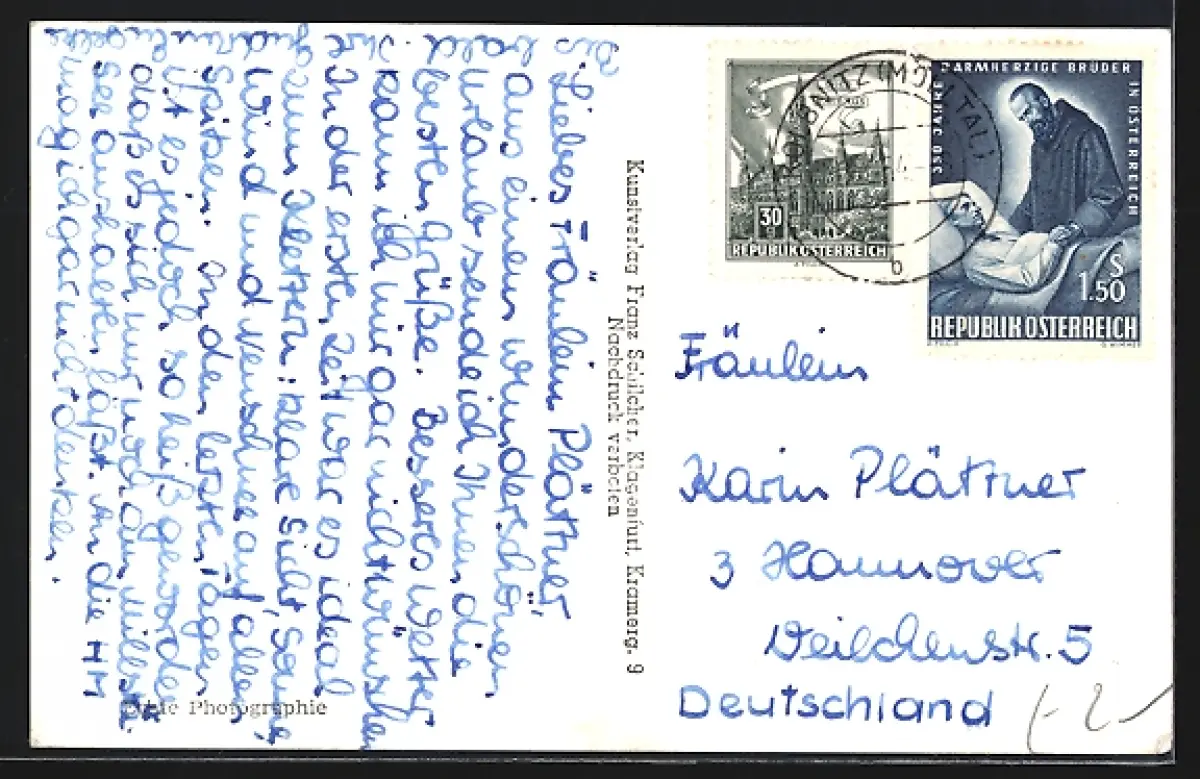 Liebes Fräulein Plättner,
aus einem wunderschönen
Urlaub sende ich Ihnen die
besten Grüße. Besseres Wetter
kann ich mir gar nicht wünschen
In der ersten Zeit war es ideal
zum Klettern: klare Sicht, Sonne
Wind und Neuschnee auf allen
Spitzen. In den letzten Tagen
ist es jedoch so heiß geworden
daß es sich nur noch am Millstätter
See aushalten läßt. An die HM
mag ich gar nicht denken.
Bis
bald
Ihre
Gudrun
Kunstverlag Franz Schilcher, Klagenfurt, Kramerg. 9
Nachdruck verboten
Echte Photographie
30
REPUBLIK ÖSTERREICH
350 JAHRE BARMHERZIGE BRÜDER IN ÖSTERREICH
S
1.50
REPUBLIK ÖSTERREICH
(MÖLLTAL)
b
Fräulein
Karin Plättner
3 Hannover
Veilchenstr. 5
Deutschland